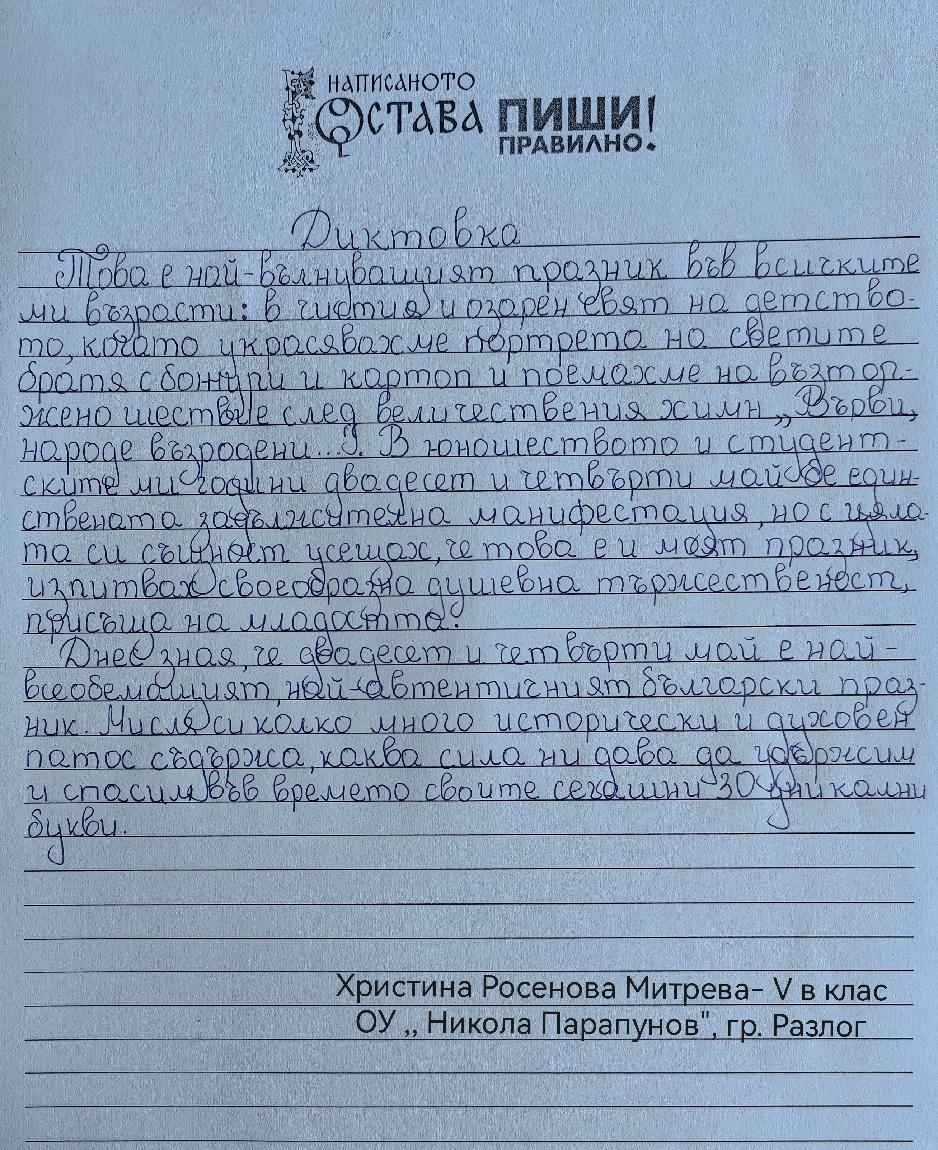 НАПИСАНОТО
ОСТАВА ПИШИ!
ПРАВИЛНО.
Диктовка
Това е най-вълнуващият празник във всичките
ми възрасти: в чистия и озарен свят на детство-
то, когато украсявахме портрета на светите
братя с божури и картоп и поемахме на възтор-
жено шествие след величествения химн „Върви,
народе възродени...". В юношеството и студент-
ските ми години двадесет и четвърти май бе един-
ствената задължителна манифестация, но с цяла-
та си същност усещах, че това е и моят празник,
изпитвах своеобразна душевна тържественост,
присъща на младостта.
Днес зная, че двадесет и четвърти май е най-
всеобемащият, най-автентичният български праз-
ник. Мисля си колко много исторически и духовен
патос съдържа, каква сила ни дава да удържим
и спасим във времето своите сегашни 30 уникални
букви.
Христина Росенова Митрева- V в клас
ОУ ,, Никола Парапунов", гр. Разлог